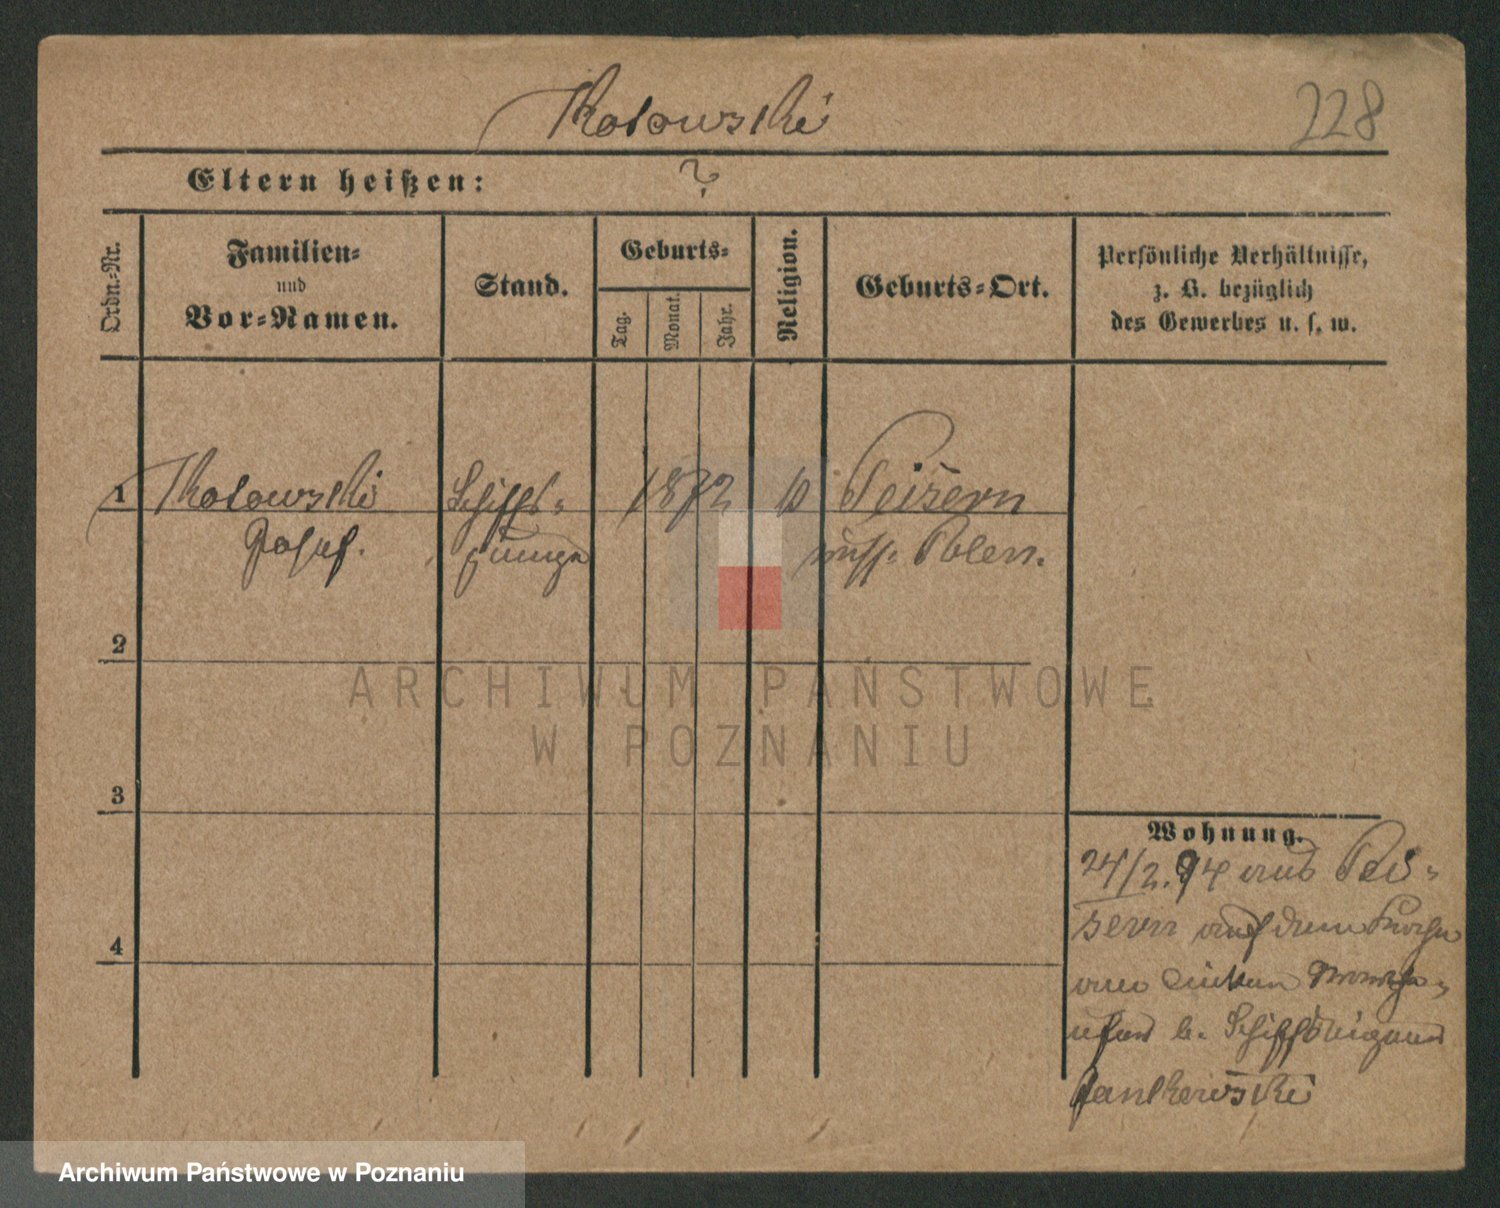 Kolowski
228
Eltern heißen: ?
Ordn.-Nr.
Familien-
und
Vor-Namen.
Stand.
Geburts-
Tag.
Monat.
Jahr.
Religion.
Geburts-Ort.
Persönliche Verhältnisse,
z. B. bezüglich
des Gewerbes u. s. w.
1 Kolowski Schiffs- 1872 Peisern
Josef. junge russ. Polen.
2
3
4
Wohnung.
24/2.94 aus Pei-
sern auf dem
am linken Warthe-
ufer b. Schiffseigner
Jankowski
ARCHIWUM PAŃSTWOWE
W POZNANIU
Archiwum Państwowe w Poznaniu